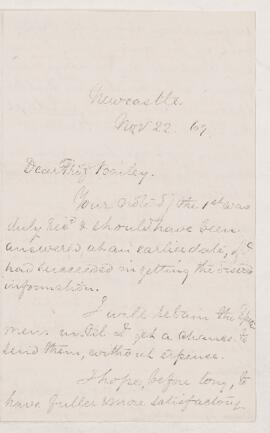 Newcastle
Nov 22. 67.
Dear Prof Bailey.
Your note of the 1st was
duly recd & should have been
answered at an earlier date, if I
had succeeded in getting the desired
information.
I will retain the speci
mens until I get a chance to
send them, without expense.
I hope, before long, to
have fuller & more satisfactory